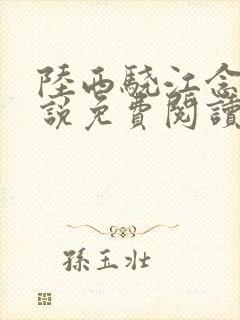 陸西驍江念
說免費閱讀
孫玉壯